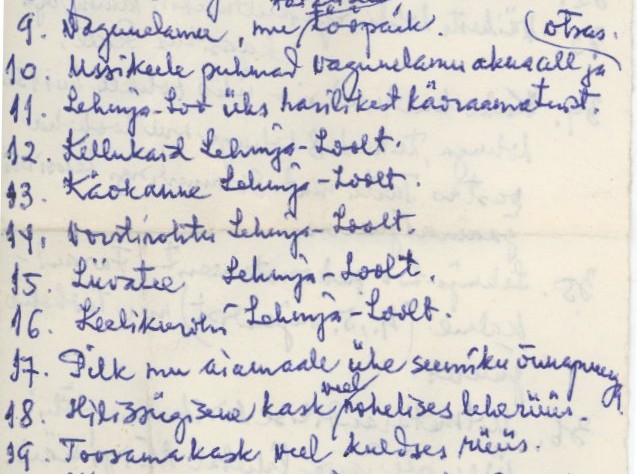 9. Vagunelamu, mu tööpäik. (otsas.
10. Ussikeele puhmad vagunelamu akna all ja
11. Lehmja-Loo üks harilikest käoraamatust
12. Kellukaid Lehmja-Loolt.
13. Käokanne Lehmja-Loolt.
14. Vorstirohtu Lehmja-Loolt
15. Liivatee Lehmja-Loolt.
16. Keelikurohi Lehmja-Loolt.
17. Pilk mu aiamaale ühe seemiku õunapuuga.
18. Hilissügisene kask veel rohelises leherüüs.
19. Toosama kask veel kuldses rüüs.